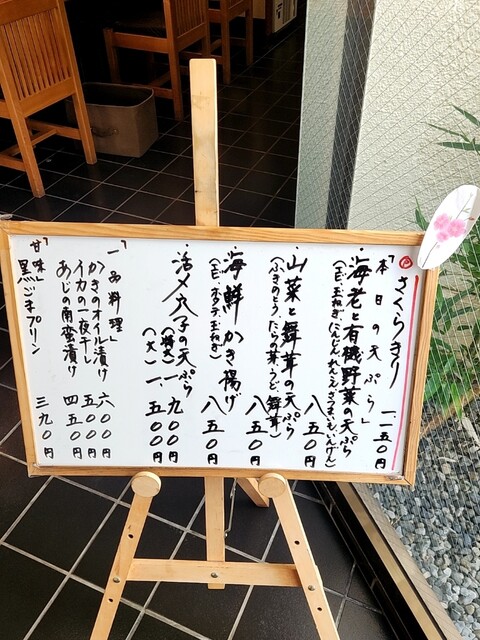 ㊗ さくらきり 一、一五〇円
「本日の天ぷら」
・海老と有機野菜の天ぷら 八五〇円
(エビ、玉ねぎ、にんじん、かんぞう、さつまいも、いんげん)
・山菜と舞茸の天ぷら 八五〇円
(ふきのとう、たらの芽、うど、舞茸)
・海鮮かき揚げ 八五〇円
(エビ、ホタテ、玉ねぎ)
・活〆穴子の天ぷら
(特大) 一、九〇〇円
(大) 一、五〇〇円
「一品料理」
かきのオイル漬け 六〇〇円
イカの一夜干し 五〇〇円
あじの南蛮漬け 四五〇円
「甘味」
黒ごまプリン 三九〇円